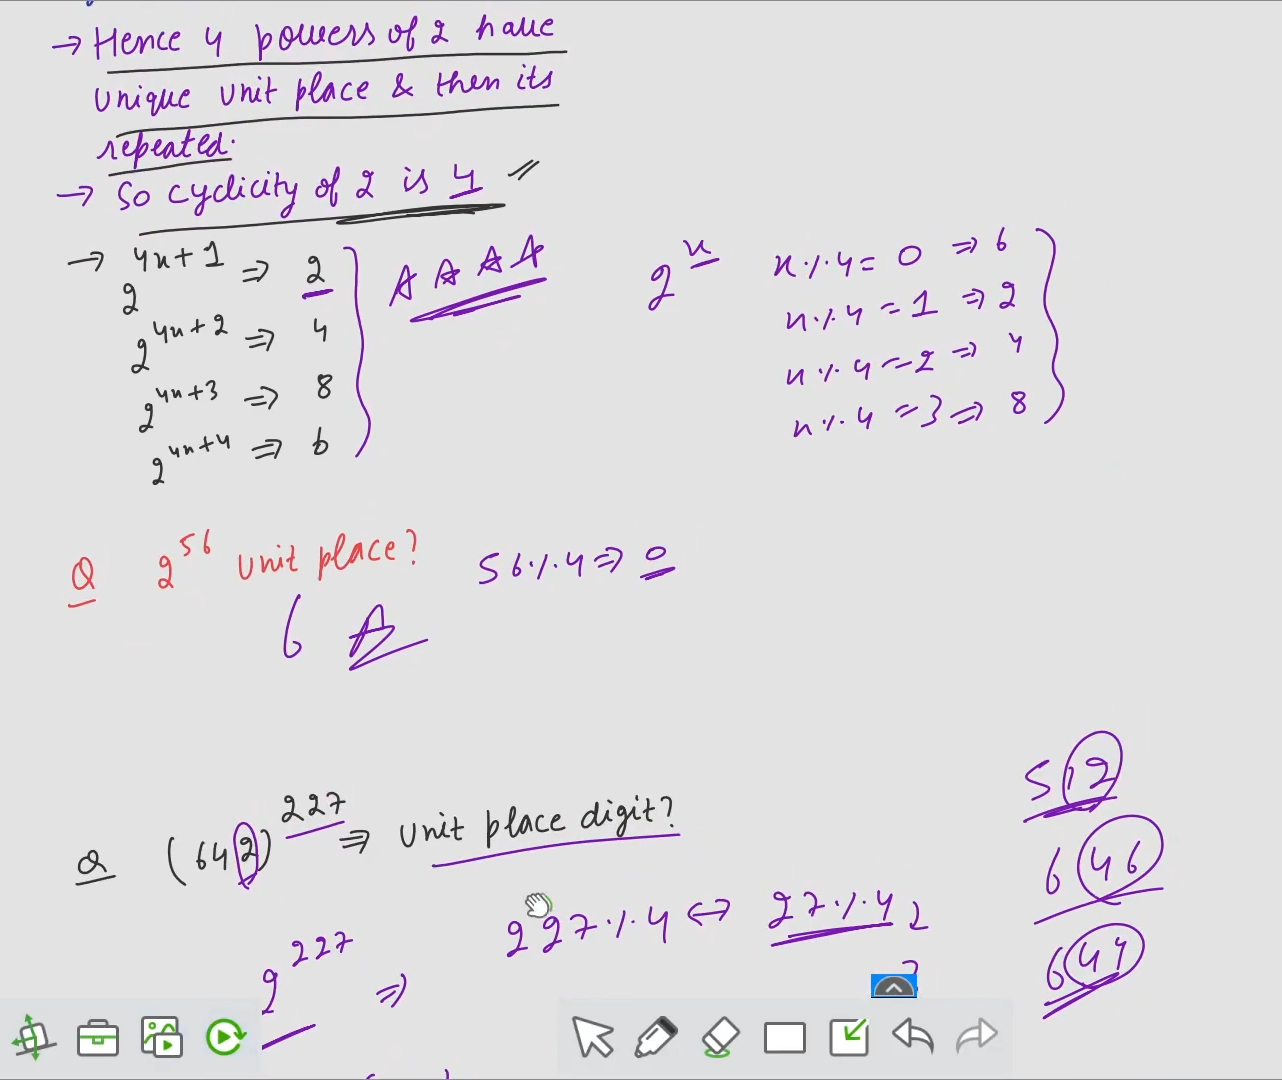 → Hence 4 powers of 2 have
unique unit place & then its
repeated.
→ So cyclicity of 2 is 4
→ 2^4n+1 ⇒ 2
2^4n+2 ⇒ 4
2^4n+3 ⇒ 8
2^4n+4 ⇒ 6
2^n
n % 4 = 0 ⇒ 6
n % 4 = 1 ⇒ 2
n % 4 = 2 ⇒ 4
n % 4 = 3 ⇒ 8
Q 2^56 unit place? 56 % 4 ⇒ 0
6 A
512
646
Q (642)^227 ⇒ unit place digit?
227 % 4 ↔ 27 % 4
2^227 ⇒